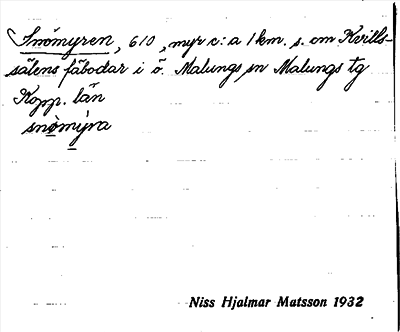 Snömyren, 610, myr c:a 1 km. s. om Kvills-
sälens fäbodar i ö. Malungs sn Malungs tg
Kopp. län
snòmýra
Niss Hjalmar Matsson 1932